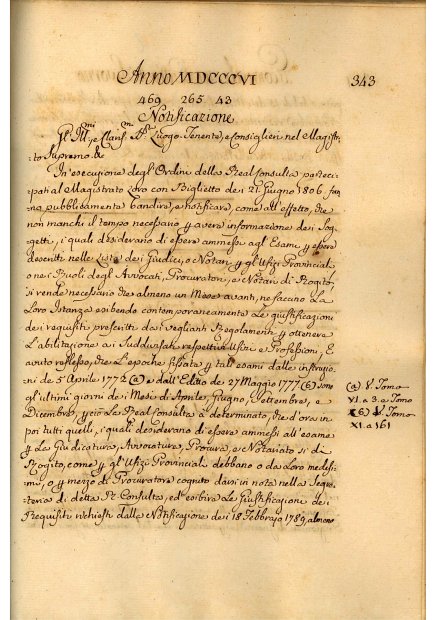 Anno MDCCCVI
343
469 265 43
Notificazione
Gl' Ill.mi, e Clariss.mi SS.ri Luogo-Tenente, e Consiglieri nel Magist-
rato Supremo &c.
In esecuzione degl' Ordini della Real Consulta parteci-
pati al Magistrato Loro con Biglietto de i 21. Giugno 1806. fan-
no pubblicamente bandire, e notificare, come all' effetto, che
non manchi il tempo necessario p avere informazione dei Sog-
getti, i quali desiderano di essere ammessi agl' Esami p essere
descritti nelle Liste dei Giudici, e Notari p gl' Ufizi Provinciali
o nei Ruoli degl' Avvocati, Procuratori, e Notari di Rogito,
si rende necessario che almeno un Mese avanti, ne faccino La
Loro Istanza esibendo contemporaneamente Le giustificazioni
dei requisiti prescritti dai veglianti Regolamenti p ottenere
L'abilitazione ai suddivisati respettivi Ufizi e Professioni, E
avuto riflesso, che L'epoche fissate p tali esami dalle instruzio-
ni de 5 Aprile 1772 (a) e dall' Editto de 27 Maggio 1777 (b) sono
gl' ultimi giorni dei Mesi di Aprile, Giugno, Settembre, e
Dicembre, p ciò La Real Consulta à determinato, che d'ora in
poi tutti quelli, i quali desiderano di essere ammessi all' esame
p La Giudicatura, Avvocatura, Procura, e Notariato sì di
Rogito, come p gl' Ufizi Provinciali debbano o da Loro medesi-
mi, o p mezzo di Procuratore cognito darsi in nota nella Segre-
teria di detta R. Consulta, ed esibire Le Giustificazioni dei
Requisiti richiesti dalla Notificazione dei 18 Febbrajo 1789, almeno
(a) V. Tomo
VI. a 3. e Tomo
(b) V. Tomo
XI. a 161